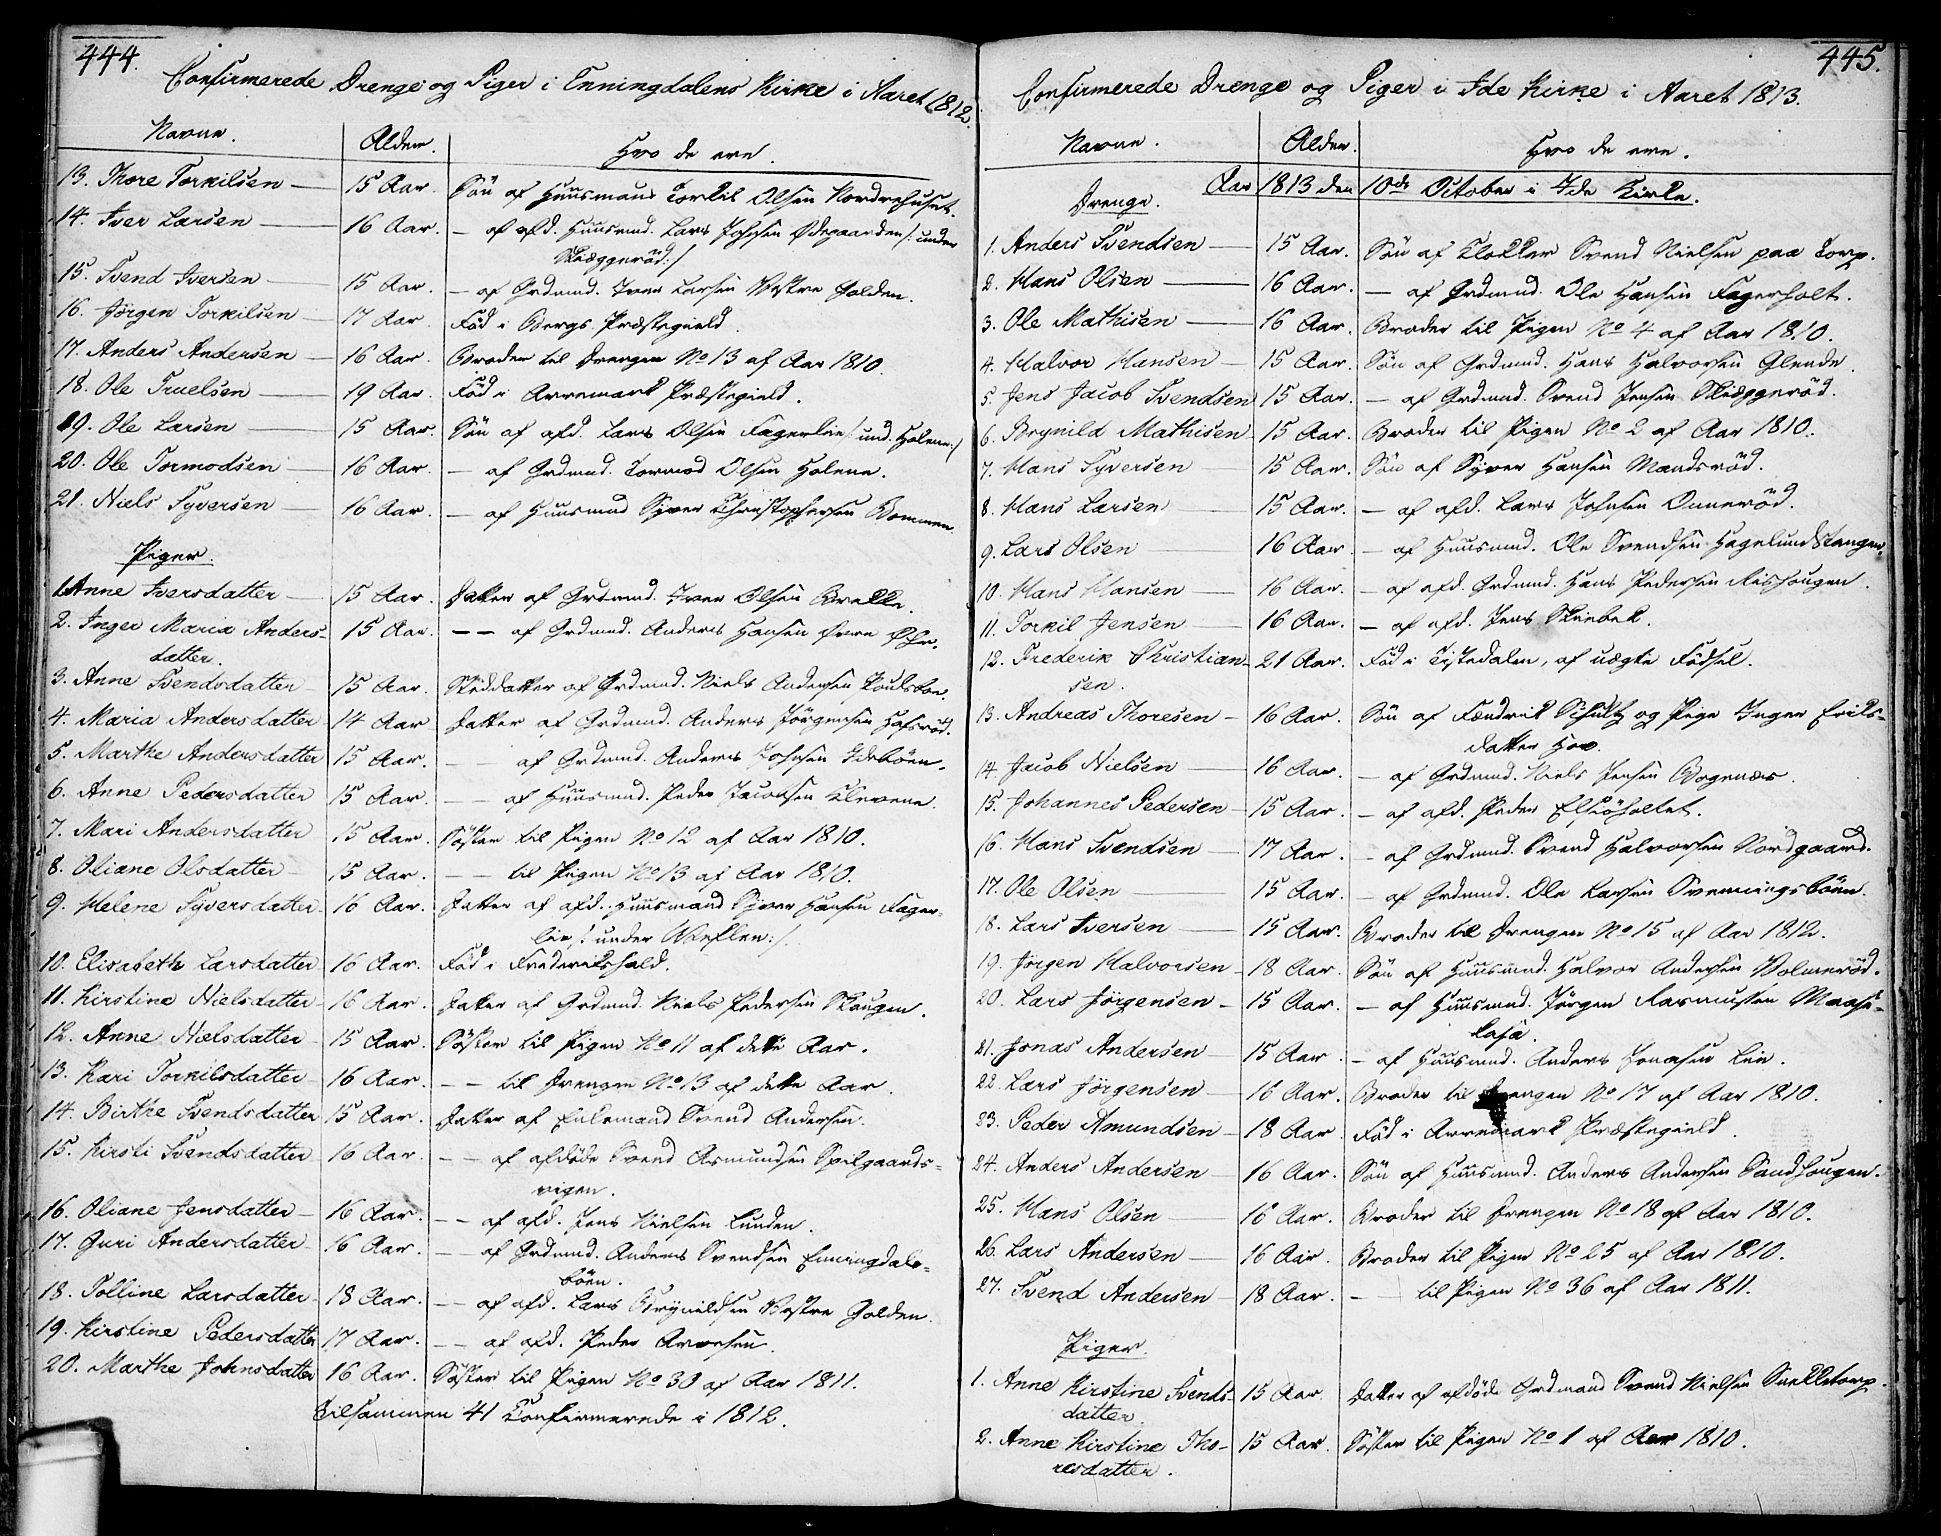 444.
Confirmerede Drenge og Piger i Enningdalens Kirke i Aaret 1812.
Navne. Alder. Hvo de ere.
13. Thore Torkilsen — 15 Aar. Søn af Huusmans Torkil Olsen Nordrehuset.
14. Iver Larsen — 16 Aar. — af afd. Huusmd. Lars Johnsen Ødegaarden /: under
Skiæggerød :/
15. Svend Iversen — 15 Aar. — af Grdmd. Iver Larsen Vestre Holden.
16. Jørgen Torkilsen — 17 Aar. Fød i Bergs Præstegield.
17. Anders Andersen — 16 Aar. Broder til Drengen No 13 af Aar 1810.
18. Ole Truelsen — 19 Aar. Fød i Arremark Præstegield.
19. Ole Larsen — 15 Aar. Søn af afd. Lars Olsen Fagerlie /: und. Holene :/
20. Ole Tormodsen — 16 Aar. — af Grdmd. Tormod Olsen Holene.
21. Niels Syversen — 16 Aar. — af Huusmand Syver Christophersen Bommen
Piger.
1. Anne Iversdatter — 15 Aar. Datter af Grdmd. Iver Olsen Brekke.
2. Inger Maria Anders- 15 Aar. — — af Grdmd. Anders Hansen Øvre
datter.
3. Anne Svendsdatter 15 Aar. Stiddatter af Grdmd. Niels Andersen
4. Maria Andersdatter 14 Aar Datter af Grdmd. Anders Jørgensen Hafsrød.
5. Marthe Andersdatter 15 Aar. — — af Grdmd. Anders Johnsen Idebøen.
6. Anne Pedersdatter 15 Aar. — — af Huusmd. Peder Jacobsen Klevene.
7. Mari Andersdatter 15 Aar. Søster til Pigen No 12 af Aar 1810.
8. Oliane Olsdatter 15 Aar. — — til Pigen No 13 af Aar 1810.
9. Helene Syversdatter 16 Aar. Datter af afd. Huusmand Syver Hansen Fager-
lie /: under
10. Elisabeth Larsdatter 16 Aar. Fød i Frederikshald.
11. Kirstine Nielsdatter 16 Aar. Datter af Grdmd. Niels Pedersen Skaugen.
12. Anne Nielsdatter 15 Aar. Søster til Pigen No 11 af dette Aar.
13. Kari Torkilsdatter 16 Aar. — — til Drengen No 13 af dette Aar.
14. Birthe Svendsdatter 15 Aar. Datter af Enkemand Svend Andersen.
15. Kirsti Svendsdatter 16 Aar. — — af afdøde Svend Asmundsen Spilgaards-
vigen.
16. Oliane Jensdatter 16 Aar. — — af afd. Jens Nielsen Lunden.
17. Guri Andersdatter 16 Aar. — af Grdmd. Anders Svendsen Enningdals-
bøen.
18. Tolline Larsdatter 18 Aar. — — af afd. Lars Brynildsen Vestre Holden.
19. Kirstine Pedersdatter 17 Aar. — — af afd. Peder Arvesen.
20. Marthe Johnsdatter 16 Aar. Søster til Pigen No 30 af Aar 1811.
Tilsammen 41 Confirmerede i 1812.
445.
Confirmerede Drenge og Piger i Ide Kirke i Aaret 1813.
Navne. Alder. Hvo de ere.
Aar 1813 den 10de October i Ide Kirke.
Drenge.
1. Anders Svendsen — 15 Aar. Søn af Klokker Svend Nielsen paa Torp.
2. Hans Olsen — 16 Aar. — af Grdmd. Ole Hansen Fagerholt.
3. Ole Mathisen — 16 Aar. Broder til Pigen No 4 af Aar 1810.
4. Halvor Hansen — 15 Aar. Søn af Grdmd. Hans Halvorsen Glende.
5. Jens Jacob Svendsen 15 Aar. — af Grdmd. Svend Jensen Skiæggerød.
6. Brynild Mathisen 15 Aar. Broder til Pigen No 2 af Aar 1810.
7. Hans Syversen 15 Aar. Søn af Syver Hansen Mandsrød.
8. Hans Larsen 15 Aar. — af afd. Lars Johnsen Unnerød.
9. Lars Olsen 16 Aar. — af Huusmd. Ole Svendsen Hagelundstangen.
10. Hans Hansen — 16 Aar. — af afd. Grdmd. Hans Pedersen Riishougen.
11. Torkil Jensen — 16 Aar. — af afd. Jens Skiebek.
12. Frederik Christian- 21 Aar. Fød i Tistedalen, af uægte Fødsel.
sen.
13. Andreas Thoresen — 16 Aar. Søn af Fændrik Schultz og Pige Inger Eriks-
datter Hov.
14. Jacob Nielsen — 16 Aar. — af Grdmd. Niels Jensen Bogenæs.
15. Johannes Pedersen — 15 Aar. — af afd. Peder
16. Hans Svendsen — 17 Aar. — af Grdmd. Svend Halvorsen Nordgaard.
17. Ole Olsen — 15 Aar. — af Grdmd. Ole Larsen Svenningsbøen.
18. Lars Iversen — 15 Aar. Broder til Drengen No 15 af Aar 1812.
19. Jørgen Halvorsen — 18 Aar. Søn af Huusmd. Halvor Andersen Volmerød.
20. Lars Jørgensen — 15 Aar. — af Huusmd. Jørgen Rasmussen

21. Jonas Andersen — 15 Aar. — af Huusmd. Anders Jonasen Lie.
22. Lars Jørgensen — 16 Aar. Broder til Drengen No 17 af Aar 1810.
23. Peder Amundsen — 18 Aar. Fød i Arremark Præstegield.
24. Anders Andersen — 16 Aar. Søn af Huusmd. Anders Andersen Sandhougen.
25. Hans Olsen — 16 Aar. Broder til Drengen No 18 af Aar 1810.
26. Lars Andersen — 16 Aar. Broder til Pigen No 25 af Aar 1810.
27. Svend Andersen — 18 Aar. — til Pigen No 36 af Aar 1811.
Piger.
1. Anne Kirstine Svends- 15 Aar. Datter af afdøde Grdmand Svend Nielsen Snekketorp.
datter.
2. Anne Kirstine Tho- 15 Aar. Søster til Pigen No 1 af Aar 1810.
resdatter.